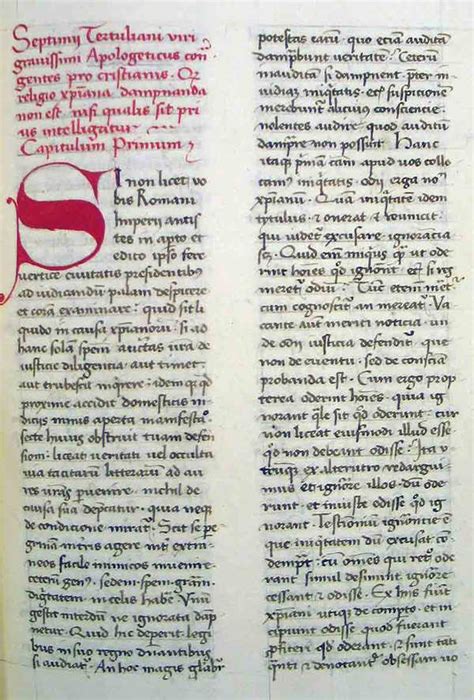 Septimii Tertuliani viri
gravissimi Apologeticus con
gentes pro cristianis. Qz
religio xpiana dampnanda
non est nisi qualis sit pri
us intelligatur
Capitulum Primum
SI non licet vo
bis Romani
Imperii antis
tes in apto et
edito ipso fere
vertice civitatis presidentibus
ad iudicandum palam despicere
et cora examinare quid sit li
quido in causa xpianoru si ad
hanc solam spem auctas ura de
iusticie diligencia aut timet
aut erubescit inquirere idem qz qd
proxime accidit domesticis in
diciis nimis aperta manifesto
secte huius obstruit tuam defen
siom liceat veritati vel occulta
via tacitaru litteraru ad au
res uras pervenire nichil de
causa sua deprecatur quia neqz
de condicione mirat Scit se pe
grinam in tris agere int extra
neos facile inimicos invenire
ceteru gen sedem spem gram
dignitatem in celis habe Vnu
gestit interdu ne ignorata dap
netur Quid hic deperit legi
bus in suo regno dnantibus
si audiat An hoc magis glabr
potestas earu quo etia audita
dampbunt veritate Ceteru
inaudita si dampnent pter in
vidia iniqtatis et suspitione
merebunt alicuius consciencie
nolentes audire quod auditu
dampnare non possint Hanc
itaqz pma cam apud vos collo
cam iniqtatis odii erga no
xpianu Qua iniqtate idem
tytulus et onerat et revincit
qui videt excusare ignoracia
scz Quid em iniqus qz ut ode
rint hoies qd ignorit et si res
meret odiu Tuc etem met
cum cognoscit an mereat Va
cante aut meriti noticia un
de odii iusticia defendit que
non de eventu sed de conscia
probanda est Cum ergo prop
terea oderint hoies quia ig
norant qle sit qd oderunt cur
non liceat eiusmodi illud esse
qd non debeant odisse Ita v
trumqz ex alterutro redargui
mus et ignorare illos du ode
runt et iniuste odisse qd ig
norant Testioniu ignorantie e
que iniqtatem du excusat co
dempt cu omes qui retro ode
rant simul desinunt ignore
cessant et odisse Ex his fiunt
xpiani utiqz de compto et in
cipiunt odisse quod fuerant
pfiteri qd oderant et sunt tati
qnti et denotant Obsessam vo